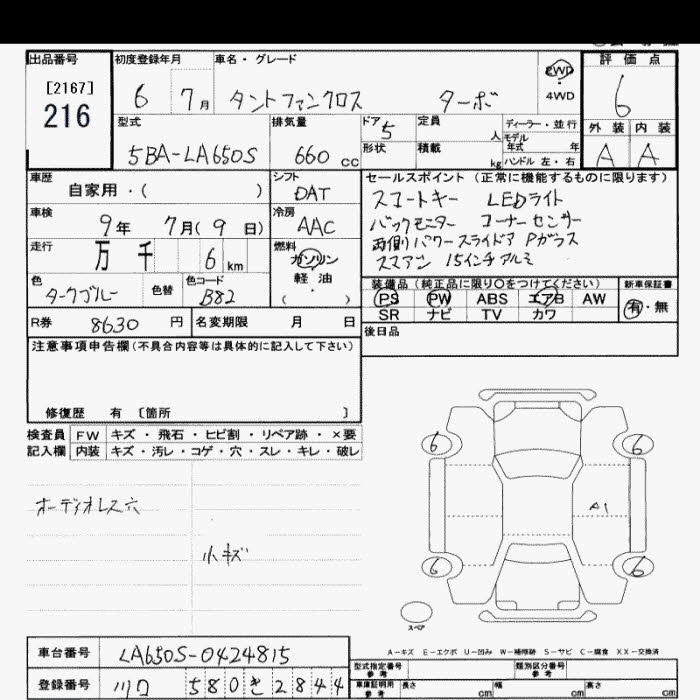 出品番号 初度登録年月 車名・グレード 評価点
[2167] 6 7月 タントファンクロス ターボ 2WD 4WD 6
216
型式 排気量 ドア 定員 ディーラー・並行 外装 内装
5BA-LA650S 660 cc 5 人 モデル年式 年 A A
形状 積載 kg ハンドル 左・右
車歴 シフト セールスポイント (正常に機能するものに限ります)
自家用・( ) DAT スマートキー LEDライト
車検 冷房 バックモニター コーナーセンサー
9年 7月(9日) AAC 両側パワースライドア Pガラス
走行 燃料 スマアシ 15インチアルミ
万 千 6 km ガソリン 軽油 ( ・ )
色 色替 色コード 装備品 (純正品に限り○をつけてください) 新車保証書
タークブルー B82 PS PW ABS エアB AW 有・無
SR ナビ TV カワ
R券 8630 円 名変期限 月 日 後日品
注意事項申告欄(不具合内容等は具体的に記入して下さい)
修復歴 有 〔箇所 〕
検査員 FW キズ・飛石・ヒビ割・リペア跡・×要
記入欄 内装 キズ・汚レ・コゲ・穴・スレ・キレ・破レ
オーディオレス穴
小キズ
6 6
A1
6 6
スペア
A-キズ E-エクボ U-凹み W-補修跡 S-サビ C-腐食 XX-交換済
車台番号 LA650S-0424815
型式指定番号 参考 類別区分番号 参考
登録番号 川口 580 き 2844
車庫証明用 参考 長さ cm 幅 cm 高さ cm